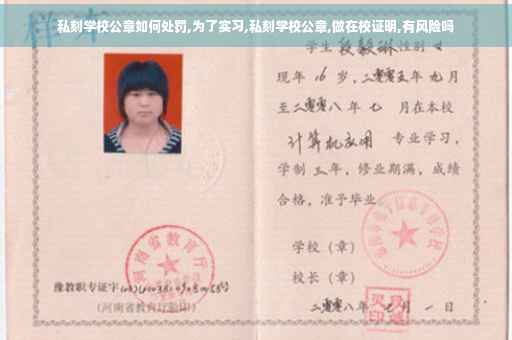 私刻学校公章如何处罚,为了实习,私刻学校公章,做在校证明,有风险吗
样本
学生 段毅琳 性别 女
现年 16 岁，二零零五年 九月
至二零零八 年 七 月在本校
计算机应用 专业学习，
学制 三 年，修业期满，成绩
合格，准予毕业。
学校（章）
校长（章）
二零零八年 七 月 一 日
河南省教育厅
豫教职专证字
(河南省教育厅验印)